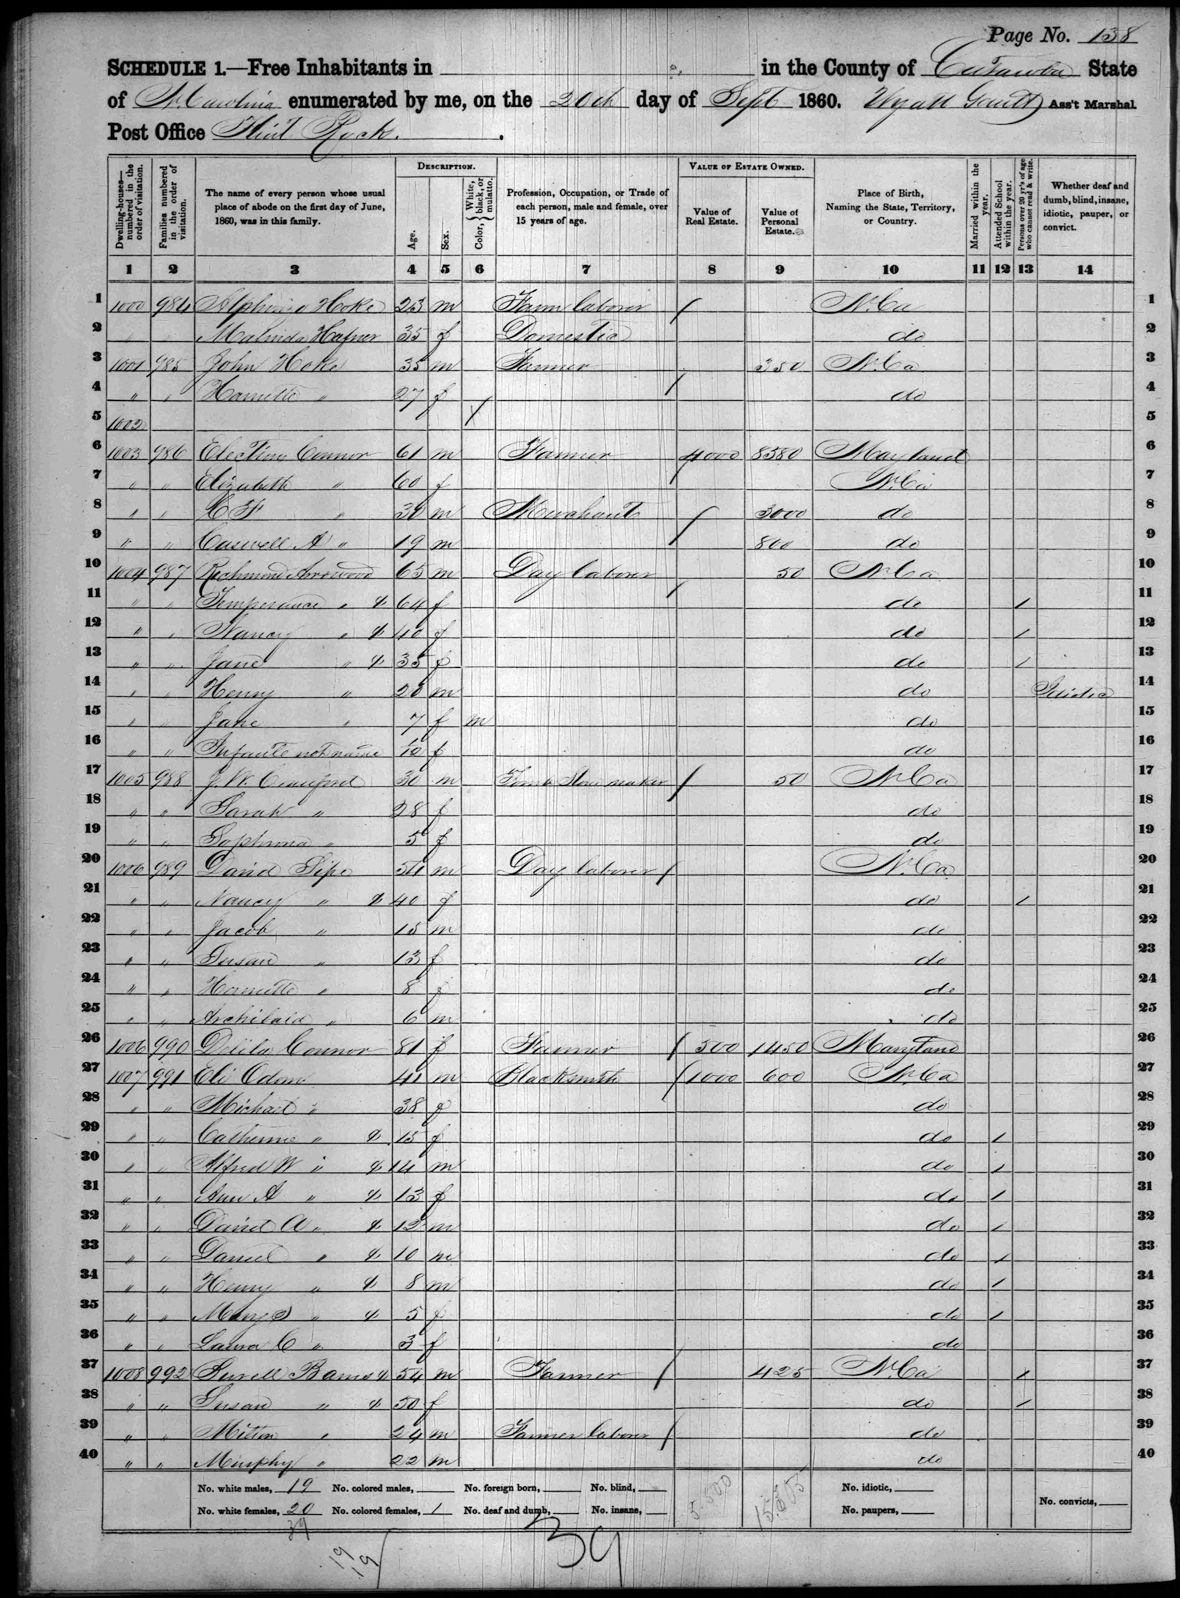 Page No. 138
SCHEDULE 1.—Free Inhabitants in in the County of Catawba State
of N. Carolina enumerated by me, on the 20th day of Sept 1860. Ass't Marshal
Post Office Flint Rock.
Dwelling-houses—numbered in the order of visitation.
Families numbered in the order of visitation.
The name of every person whose usual place of abode on the first day of June, 1860, was in this family.
DESCRIPTION.
Age.
Sex.
Color, White, black, or mulatto.
Profession, Occupation, or Trade of each person, male and female, over 15 years of age.
VALUE OF ESTATE OWNED.
Value of Real Estate.
Value of Personal Estate.
Place of Birth, Naming the State, Territory, or Country.
Married within the year.
Attended School within the year.
Persons over 20 y'rs of age who cannot read & write.
Whether deaf and dumb, blind, insane, idiotic, pauper, or convict.
1 2 3 4 5 6 7 8 9 10 11 12 13 14
1 1000 984 Hoke 23 m Farm laborer / N. Ca 1
2 Malinda Hafner 35 f Domestic do 2
3 1001 985 John Hoke 35 m Farmer 350 N. Ca 3
4 " " " 27 f / do 4
5 1002 / 5
6 1003 986 Connor 61 m Farmer 4000 8380 Maryland 6
7 " " Elizabeth " 60 f / N. Ca 7
8 " " C F " 30 m Merchant / 3000 do 8
9 " " Caswell A " 19 m / 800 do 9
10 1004 987 Richmond Arrowood 65 m Day laborer 50 N. Ca 10
11 " " Temperance " 64 f / do / 11
12 " " Nancy " 40 f do / 12
13 " " Jane " 35 f do / 13
14 " " Henry " 20 m do 14
15 " " Jane " 7 f m do 15
16 " " Infant not name f do 16
17 1005 988 J. W. Crawford 30 m / 50 N. Ca 17
18 " " Sarah " 28 f do 18
19 " " Sophrona " 5 f do 19
20 1006 989 David Sipe m Day laborer / N. Ca 20
21 " " Nancy " 40 f do / 21
22 " " Jacob " 15 m do 22
23 " " Susan " 13 f do 23
24 " " " 8 f do 24
25 " " Archibald " 6 m do 25
26 1006 990 Connor 81 f Farmer / 500 1450 Maryland 26
27 1007 991 Eli Odom 41 m Blacksmith / 1000 600 N. Ca 27
28 " " " 38 f do 28
29 " " Catherine " 15 f do / 29
30 " " Alfred W " 14 m do / 30
31 " " Ann A " 13 f do / 31
32 " " David A " 12 m do / 32
33 " " Daniel " 10 m do / 33
34 " " Henry " 8 m do / 34
35 " " Mary S " 5 f do / 35
36 " " Laura C " 3 f do 36
37 1008 992 54 m Farmer / 425 N. Ca / 37
38 " " Susan " 50 f do / 38
39 " " Milton " 24 m Farmer laborer / do 39
40 " " Murphy " 22 m do 40
No. white males, 19 No. colored males, No. foreign born, No. blind, No. idiotic,
No. white females, 20 No. colored females, 1 No. deaf and dumb, No. insane, No. paupers, No. convicts,
39
5.500
19
19
39